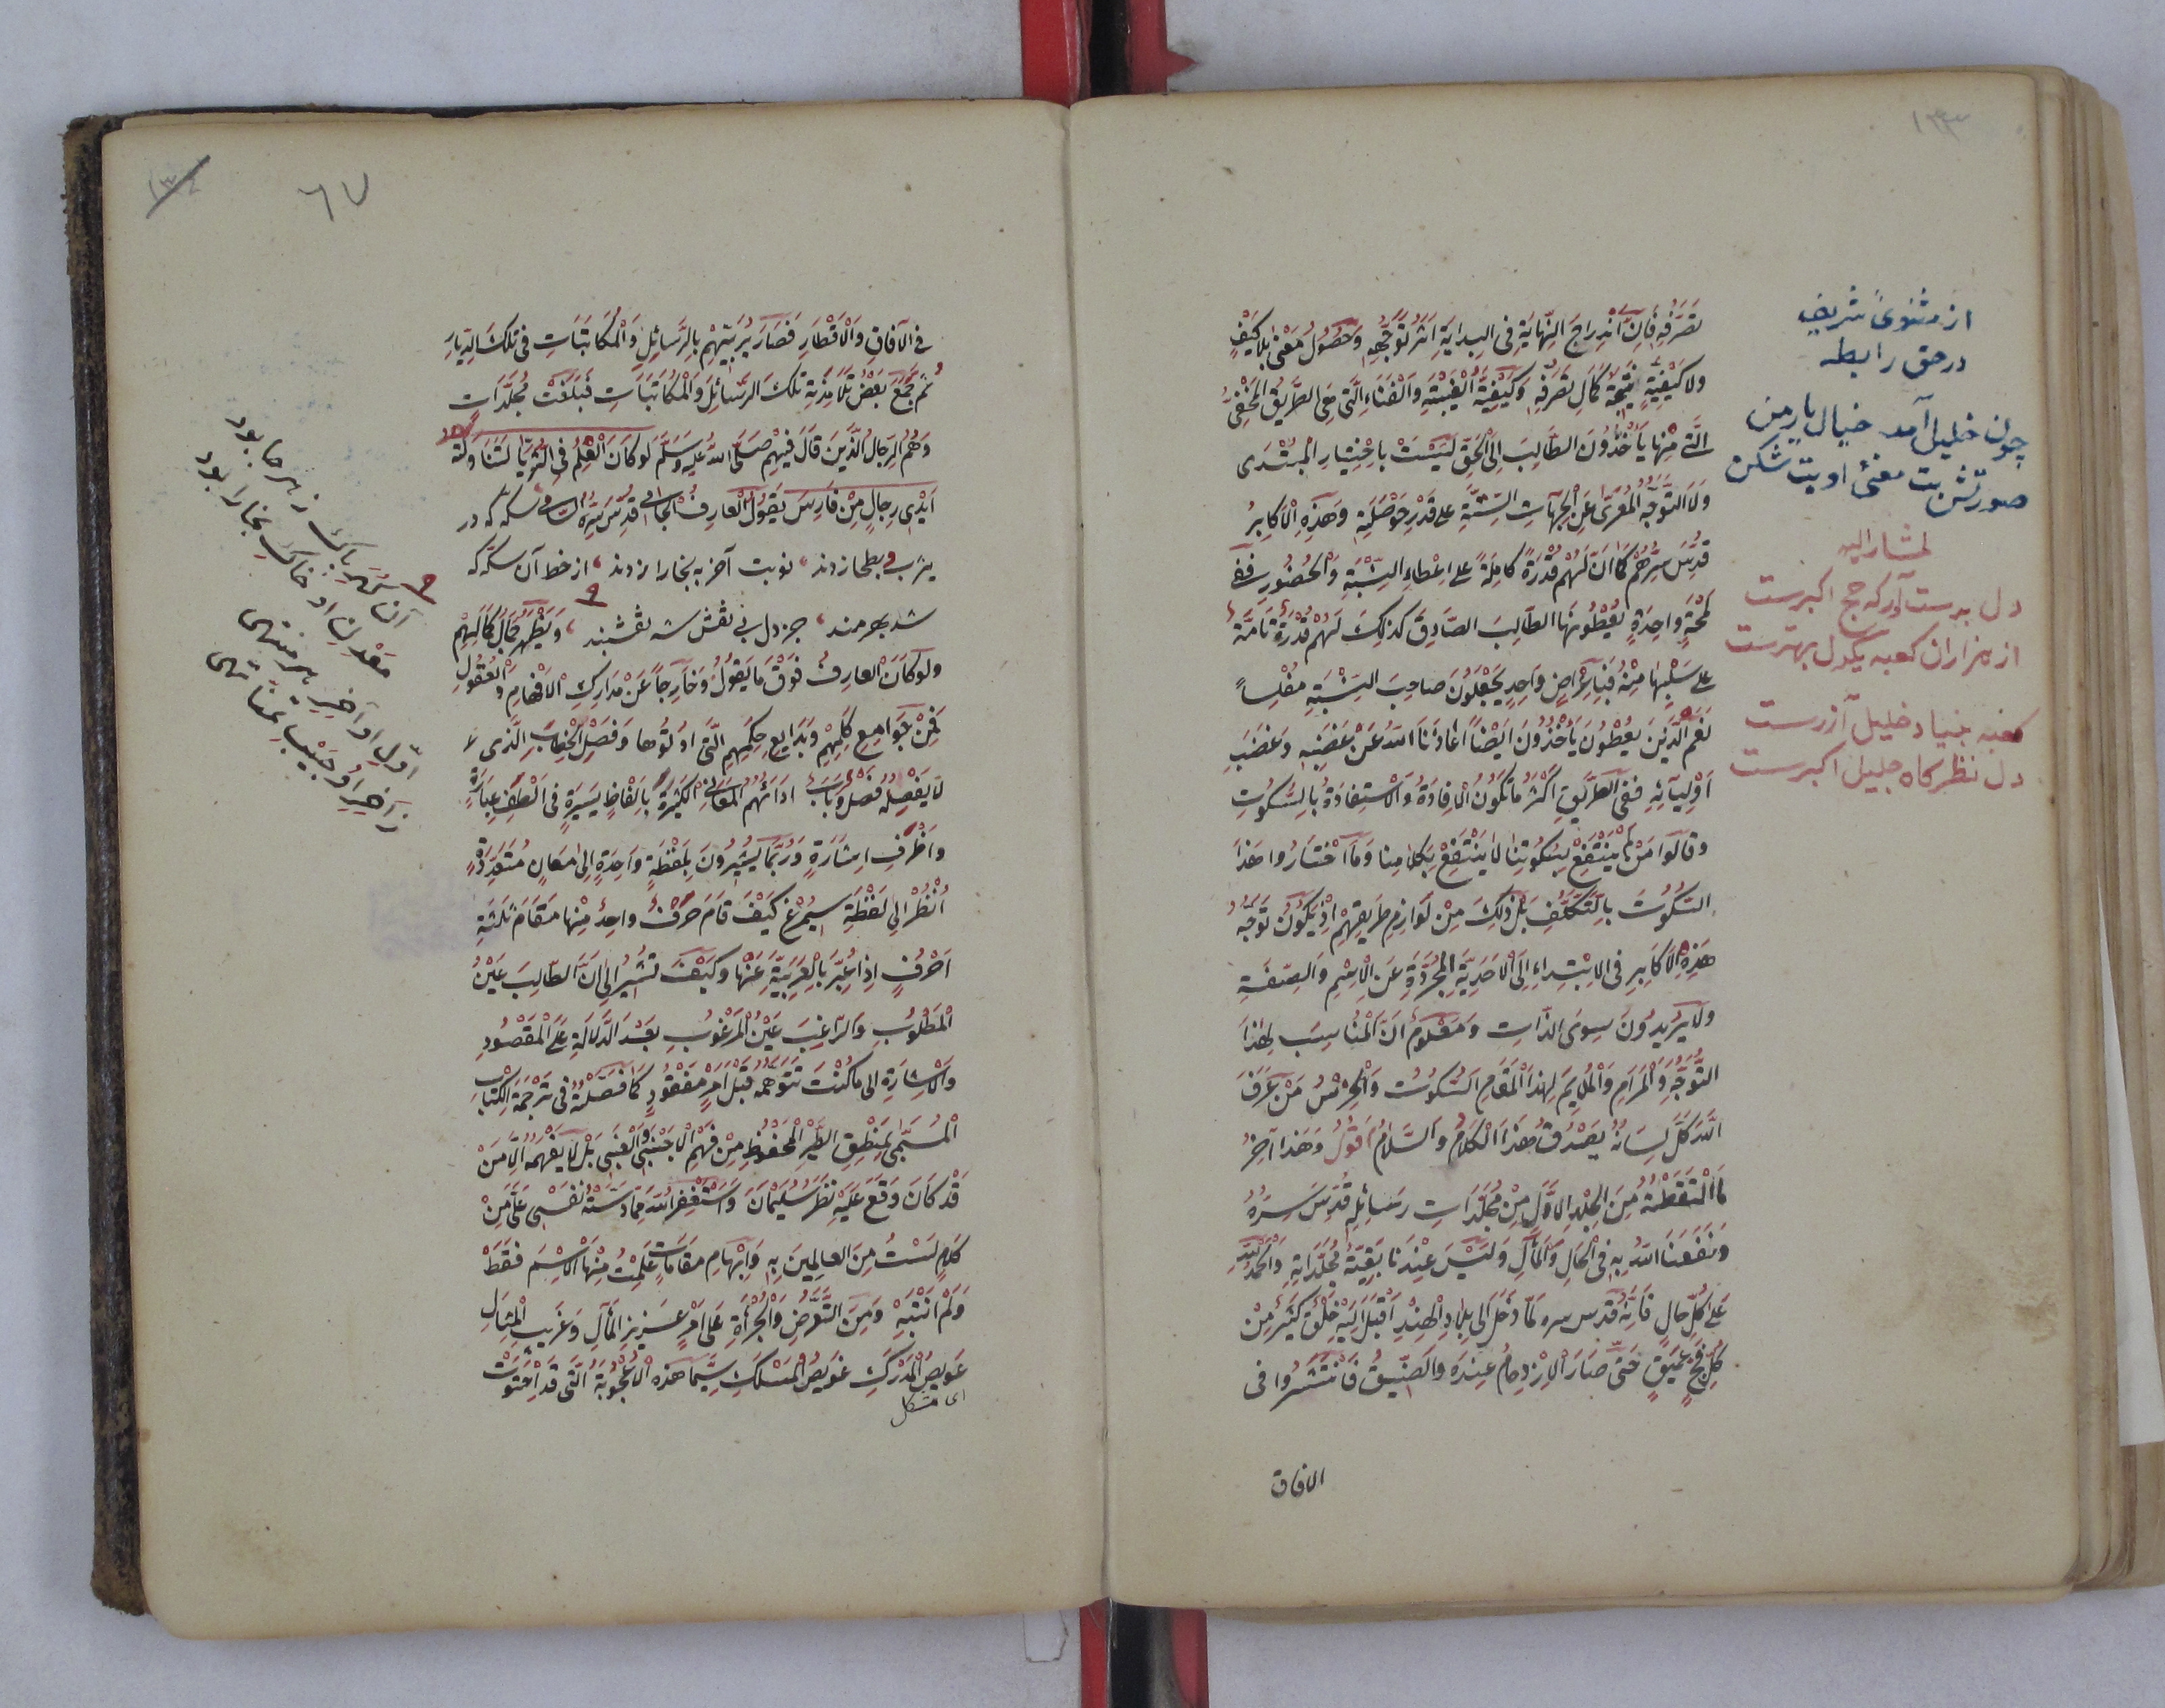 ١٣٣
تصرفه فان اندراج النهاية في البداية اثر توجهه وحصول معنى بلا كيف
ولا كيفية نتيجة كمال تصرفه وكيفية الغيبة والفناء التي هي الطريق المخفي
التي منها يأخذون الطالب الى الحق ليست باختيار المبتدى
ولا التوجه المعرى عن الجهات الستة على قدر حوصلته وهذه الاكابر
قدس سرهم كما ان لهم قدرة كاملة على اعطاء النسبة والحضور ففي
لمحة واحدة يعطونها الطالب الصادق كذلك لهم قدرة تامة
على سلبها منه فباعراض واحد يجعلون صاحب النسبة مفلسا
نعم الذين يعطون يأخذون ايضا اعاذنا الله عن غضبه وغضب
اوليائه ففي الطريق اكثر ما تكون الافادة والاستفادة بالسكوت
وقالوا من لم ينتفع بسكوتنا لا ينتفع بكلامنا وما اختاروا هذا
السكوت بالتكلف بل ذلك من لوازم طريقهم اذ يكون توجه
هذه الاكابر في الابتداء الى الاحدية المجردة عن الاسم والصفة
ولا يريدون سوى الذات ومعلوم ان المناسب لهذا
التوجه والمرام والملايم لهذا المقام السكوت والخرس من عرف
الله كل لسانه يصدق هذا الكلام والسلام اقول وهذا آخر
ما التقطته من الجلد الاول من مجلدات رسائله قدس سره
ونفعنا الله به في الحال والمآل وليس عندنا بقية مجلداته والحمد لله
على كل حال فانه قدس سره لما دخل الى بلاد الهند اقبل اليه خلق كثير من
كل فج عميق حتى صار الازدحام عنده والضيق فانتشروا في
الافاق
از مثنوئ شريف
در حق رابطه
چون خليل آمد خيال يار من
صورتش بت معنئ او بت شكن
لمشار اليه
دل بدست آور كه حج اكبرست
از هزاران كعبه يكدل بهترست
كعبه بنياد خليل آزرست
دل نظرگاه جليل اكبرست
٦٧
في الآفاق والاقطار فصار يربيهم بالرسائل والمكاتبات في تلك الديار
ثم جمع بعض تلامذته تلك الرسائل والمكاتبات فبلغت مجلدات
وهم الرجال الذين قال فيهم صلى الله عليه وسلم لو كان العلم في الثريا لتناولته
ايدى رجال من فارس يقول العارف الجامى قدس سره السامى سكه كه در
يثرب وبطحا زدند نوبت آخر به بخارا زدند از خط آن سكه
شد بهرمند جز دل بى نقش شه نقشبند ويظهر كمال كمالهم
ولو كان العارف فوق ما يقول وخارجا عن مدارك الافهام والعقول
فمن جوامع كلمهم وبدايع حكمهم التي اوتوها وفصل الخطاب الذى
لا يفصله فصل وباب اداءهم المعانى الكثيرة بالفاظ يسيرة في الطف عبارة
واظرف اشارة وربما يشيرون بلفظة واحدة الى معان متعددة
انظر الى لفظة سيمرغ كيف قام حرف واحد منها مقام ثلثة
احرف اذا عبر بالعربية عنها وكيف تشير الى ان الطالب عين
المطلوب والراغب عين المرغوب بعد الدلالة على المقصود
والاشارة الى ما كنت تتوهمه قبل امر مفقود كما فصلته في ترجمة الكتاب
المسمى بمنطق الطير المحفوظ من فهم الاجنبي والغبى بل لا يفهمه الا من
قد كان وقع عليه نظر سليمان واستغفر الله مما دسته نفسى على من
كلام لست من العالمين به وابهام مقامات علمت منها الاسم فقط
ولم انتبه ومن التعرض والجرأة على امر عزيز المآل وغريب المثال
عويص المدرك غويص المسلك سيما هذه الاعجوبة التي قد احتوت
اى مشكل
آن گهر پاك ز هر جا بود
معدن او خاك بخارا بود
اول او آخر هر منتهى
ز آخر او جيب تمنا تهى